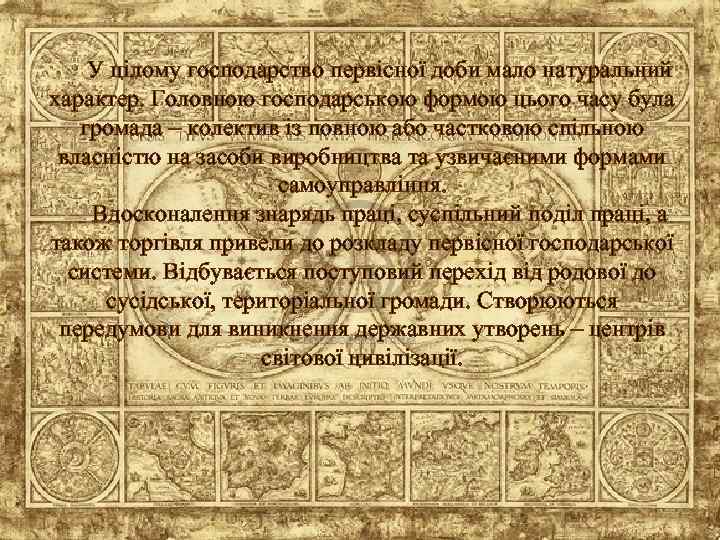 У цілому господарство первісної доби мало натуральний
характер. Головною господарською формою цього часу була
громада – колектив із повною або частковою спільною
власністю на засоби виробництва та узвичаєними формами
самоуправління.
Вдосконалення знарядь праці, суспільний поділ праці, а
також торгівля привели до розкладу первісної господарської
системи. Відбувається поступовий перехід від родової до
сусідської, територіальної громади. Створюються
передумови для виникнення державних утворень – центрів
світової цивілізації.
TABVLAE CVM FIGVRIS ET IMAGINIBVS AB INITIO MVNDI VSQVE NOSTRVM TEMPORIS